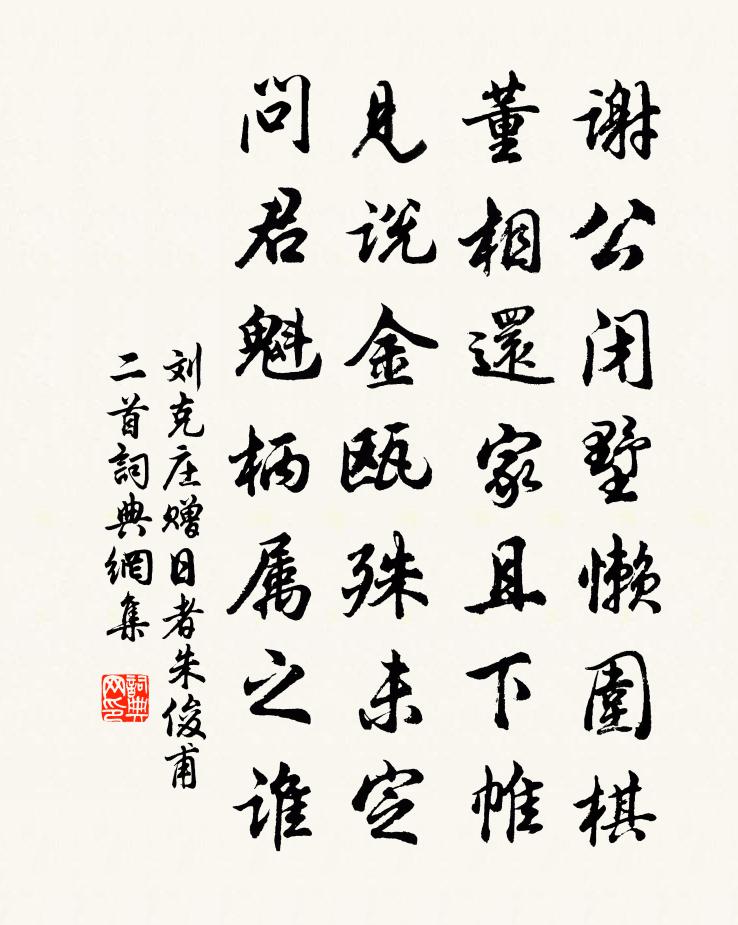 谢公闭墅懒围棋
董相還家且下帷
見说金瓯殊未定
问君魁柄属之谁
刘克庄赠日者朱俊甫
二首詞典網集
詞典
网印